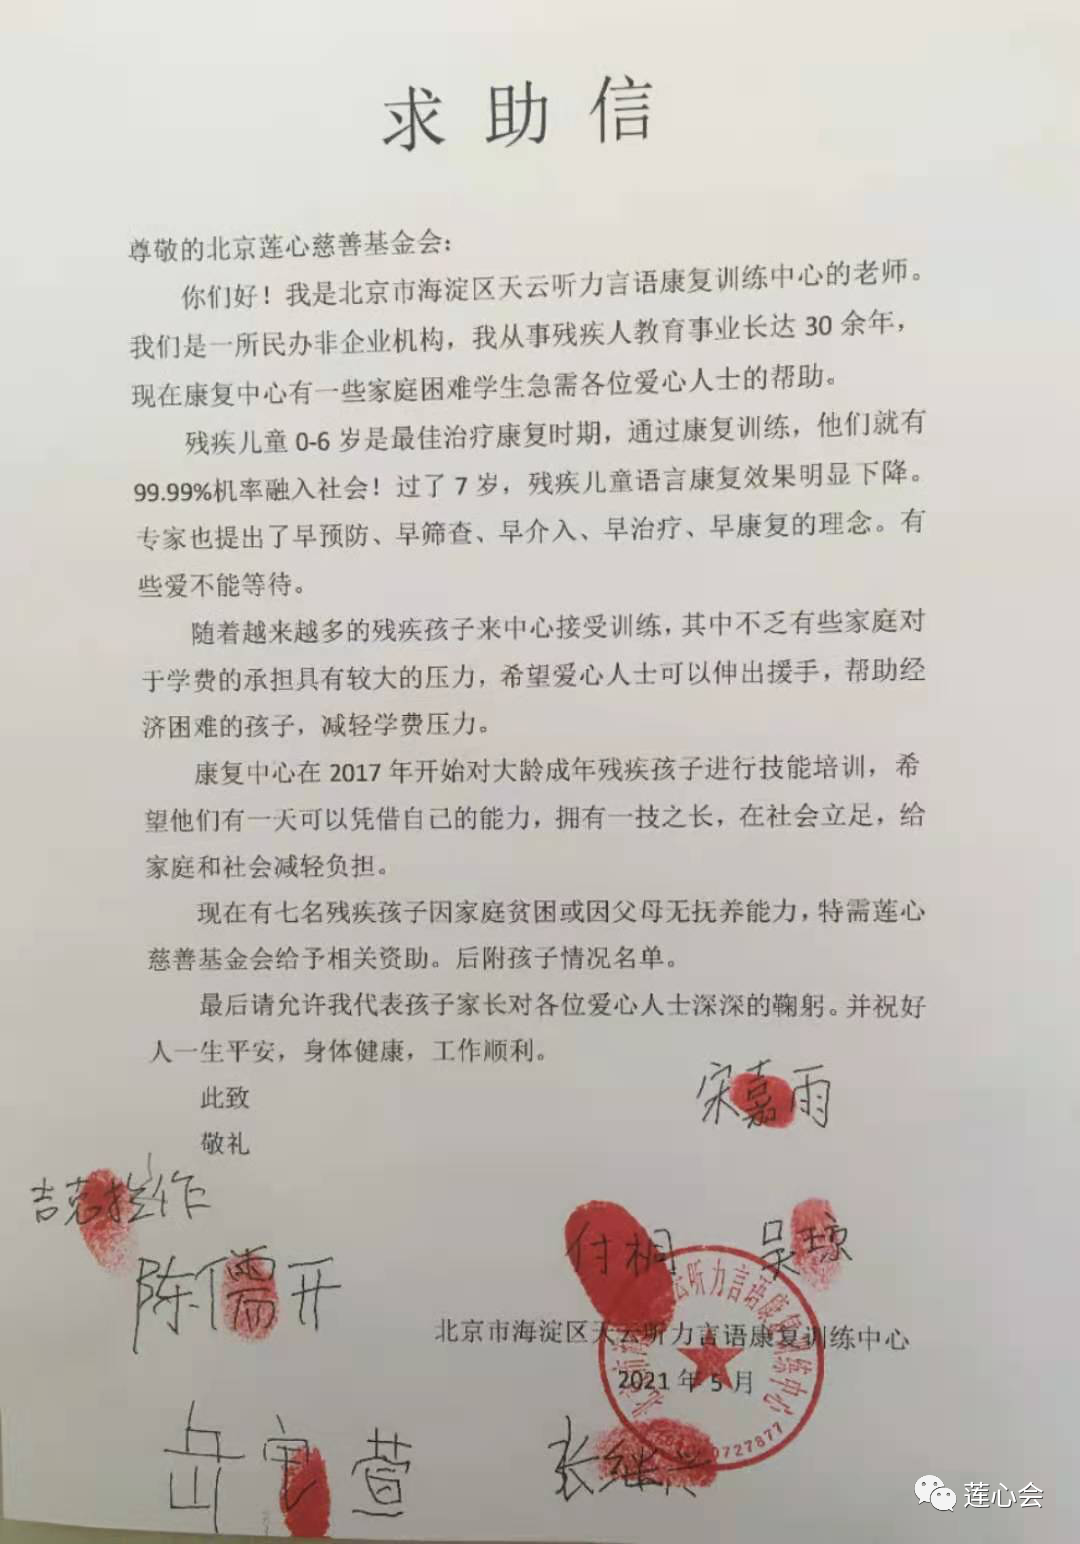 求助信
尊敬的北京莲心慈善基金会：
你们好！我是北京市海淀区天云听力言语康复训练中心的老师。
我们是一所民办非企业机构，我从事残疾人教育事业长达 30 余年，
现在康复中心有一些家庭困难学生急需各位爱心人士的帮助。
残疾儿童 0-6 岁是最佳治疗康复时期，通过康复训练，他们就有
99.99%机率融入社会！过了 7 岁，残疾儿童语言康复效果明显下降。
专家也提出了早预防、早筛查、早介入、早治疗、早康复的理念。有
些爱不能等待。
随着越来越多的残疾孩子来中心接受训练，其中不乏有些家庭对
于学费的承担具有较大的压力，希望爱心人士可以伸出援手，帮助经
济困难的孩子，减轻学费压力。
康复中心在 2017 年开始对大龄成年残疾孩子进行技能培训，希
望他们有一天可以凭借自己的能力，拥有一技之长，在社会立足，给
家庭和社会减轻负担。
现在有七名残疾孩子因家庭贫困或因父母无抚养能力，特需莲心
慈善基金会给予相关资助。后附孩子情况名单。
最后请允许我代表孩子家长对各位爱心人士深深的鞠躬。并祝好
人一生平安，身体健康，工作顺利。
此致
宋嘉雨
敬礼
吉克
作
付桐
吴琼
陈儒开
北京市海淀区天云听力言语康复训练中心
2021 年 5 月
云听力言语康复训练中心
0727877
岳
萱
张继
莲心会